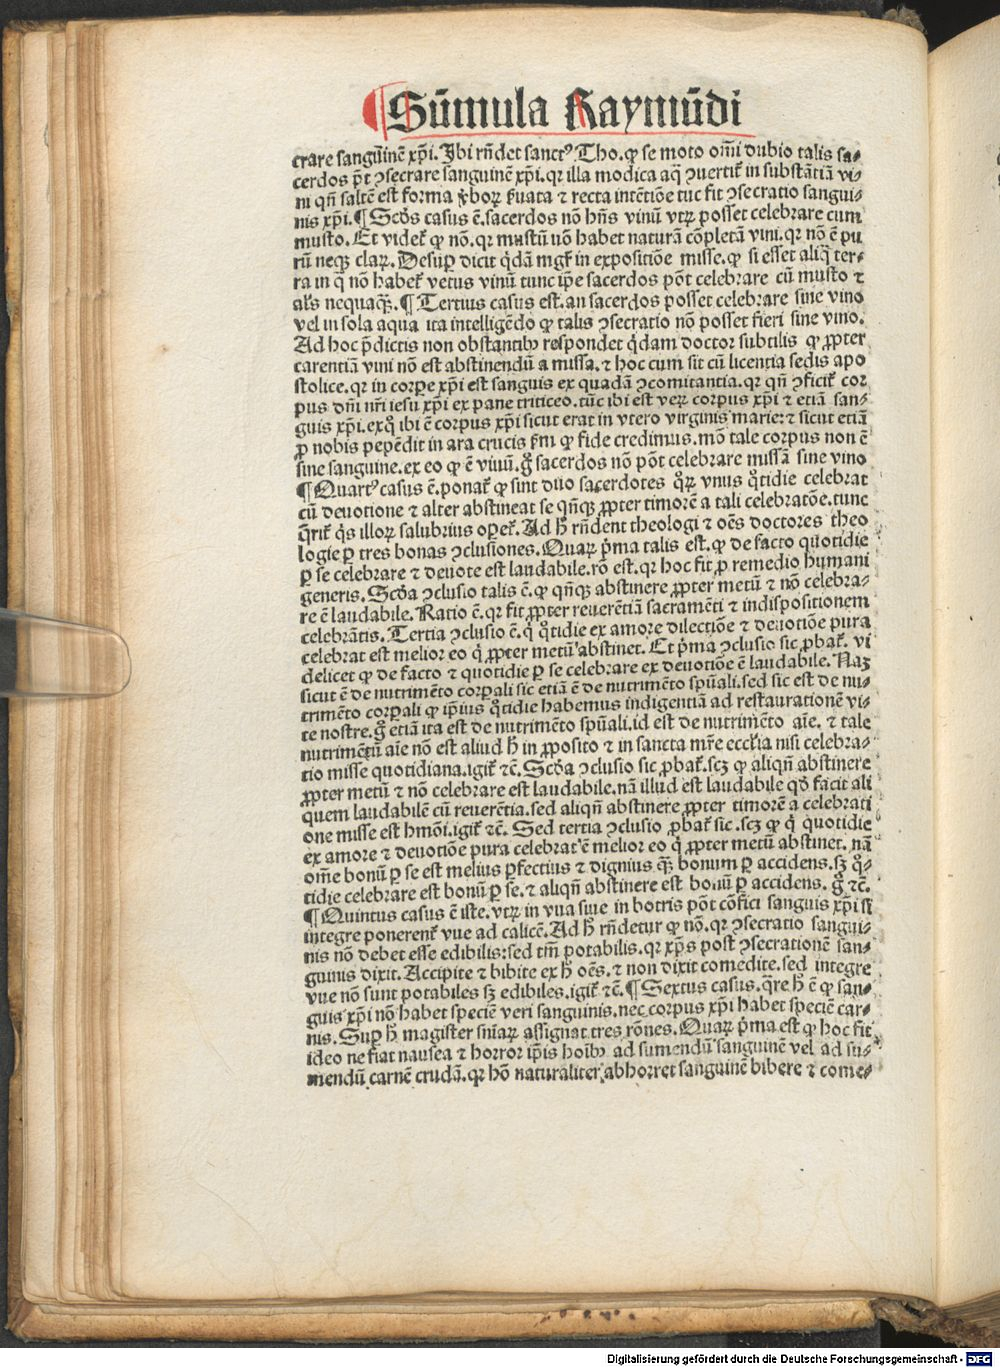 ¶ Sūmula Raymūdi
crare sanguinē xp̄i. Ibi rn̄det sanctꝰ Tho. ꝙ se moto om̄i dubio talis sa⸗
cerdos p̄t ꝯsecrare sanguinē xp̄i. qꝛ illa modica aq̄ ꝯuertit̉ in substātiā vi⸗
ni qn̄ saltē est forma v̓boꝝ s̓uata ⁊ recta intētiōe tūc fit ꝯsecratio sangui⸗
nis xp̄i. ¶ Scd̓s casus ē. sacerdos nō hn̄s vinū vtꝝ posset celebrare cum
musto. Et videt̉ ꝙ nō. qꝛ mustū nō habet naturā cōpletā vini. qꝛ nō ē pu
rū neqꝫ claꝝ. Desuꝑ dicit qͥdā mgr̄ in expositiōe misse. ꝙ si esset aliq̄ ter⸗
ra in q̄ nō habet̉ vetus vinū tunc ip̄e sacerdos pōt celebrare cū musto ⁊
al̓s nequaqꝫ. ¶ Tertius casus est. an sacerdos posset celebrare sine vino
vel in sola aqua ita intelligēdo ꝙ talis ꝯsecratio nō posset fieri sine vino.
Ad hoc p̄dictis non obstantibꝫ respondet qͥdam doctor subtilis ꝙ ꝓpter
carentiā vini nō est abstinendū a missa. ⁊ hoc cum sit cū licentia sedis apo
stolice. qꝛ in corpe xp̄i est sanguis ex quadā ꝯcomitantia. qꝛ qn̄ ꝯficit̉ cor
pus dn̄i nr̄i iesu xp̄i ex pane triticeo. tūc ibi est veꝝ corpus xp̄i ⁊ etiā san⸗
guis xp̄i. exqͦ ibi ē corpus xp̄i sicut erat in vtero virginis marie: ⁊ sicut etiā
ꝓ nobis pepēdit in ara crucis s̓m ꝙ fide credimus. mō tale corpus non ē
sine sanguine. ex eo ꝙ ē viuū. gͦ sacerdos nō pōt celebrare missā sine vino
¶ Quartꝰ casus ē. ponat̉ ꝙ sint duo sacerdotes qͦꝝ vnus qͦtidie celebrat
cū deuotione ⁊ alter abstineat se qn̄qꝫ ꝓpter timorē a tali celebratōe. tunc
q̄rit̉ qͥs illoꝝ salubrius oꝑet̉. Ad h̓ rn̄dent theologi ⁊ oēs doctores theo
logie ꝑ tres bonas ꝯclusiones. Quaꝝ pͥma talis est. ꝙ de facto quotidie
ꝑ se celebrare ⁊ deuote est laudabile. rō est. qꝛ hoc fit ꝓ remedio humani
generis. Scd̓a ꝯclusio talis ē. ꝙ qn̄qꝫ abstinere ꝓpter metū ⁊ nō celebra⸗
re ē laudabile. Ratio ē. qꝛ fit ꝓpter reuerētiā sacramēti ⁊ indispositionem
celebrātis. Tertia ꝯclusio ē. qͥ qͦtidie ex amore dilectiōe ⁊ deuotiōe pura
celebrat est melior eo qͥ ꝓpter metū abstinet. Et pͥma ꝯclusio sic ꝓbat̉. vi
delicet ꝙ de facto ⁊ quotidie ꝑ se celebrare ex deuotiōe ē laudabile. Naꝫ
sicut ē de nutrimēto corꝑali sic etiā ē de nutrimēto spūali. sed sic est de nu⸗
trimēto corꝑali ꝙ ip̄ius qͦtidie habemus indigentiā ad restaurationē vi⸗
te nostre. gͦ etiā ita est de nutrimēto spūali. id est de nutrimēto aīe. ⁊ tale
nutrimētū aīe nō est aliud h̓ in ꝓposito ⁊ in sancta mr̄e eccl̓ia nisi celebra⸗
tio misse quotidiana. igit̉ ⁊c̄. Scd̓a ꝯclusio sic ꝓbat̉. scꝫ ꝙ aliqn̄ abstinere
ꝓpter metū ⁊ nō celebrare est laudabile. nā illud est laudabile qd̓ facit ali
quem laudabilē cū reuerētia. sed aliqn̄ abstinere ꝓpter timorē a celebrati
one misse est hmōi. igit̉ ⁊c̄. Sed tertia ꝯclusio ꝓbat̉ sic. scꝫ ꝙ qͥ quotidie
ex amore ⁊ deuotiōe pura celebrat ē melior eo qͥ ꝓpter metū abstinet. nā
om̄e bonū ꝑ se est melius ꝑfectius ⁊ dignius qꝫ bonum ꝑ accidens. sꝫ qͦ⸗
tidie celebrare est bonū ꝑ se. ⁊ aliqn̄ abstinere est bonū ꝑ accidens. gͦ ⁊c̄.
¶ Quintus casus ē iste. vtꝝ in vua siue in botris pōt cōfici sanguis xp̄i si
integre ponerent̉ vue ad calicē. Ad h̓ rn̄detur ꝙ nō. qꝛ ꝯsecratio sangui⸗
nis nō debet esse edibilis: sed tm̄ potabilis. qꝛ xp̄s post ꝯsecrationē san⸗
guinis dixit. Accipite ⁊ bibite ex h̓ oēs. ⁊ non dixit comedite. sed integre
vue nō sunt potabiles sꝫ edibiles. igit̉ ⁊c̄. ¶ Sextus casus. q̄re h̓ ē ꝙ san⸗
guis xp̄i nō habet speciē veri sanguinis. nec corpus xp̄i habet speciē car⸗
nis. Suꝑ h̓ magister sn̄iaꝝ assignat tres rōnes. Quaꝝ pͥma est ꝙ hoc fit
ideo ne fiat nausea ⁊ horror ip̄is hoībꝫ ad sumendū sanguinē vel ad su⸗
mendū carnē crudā. qꝛ hō naturaliter abhorret sanguinē bibere ⁊ come⸗
Digitalisierung gefördert durch die Deutsche Forschungsgemeinschaft - DFG